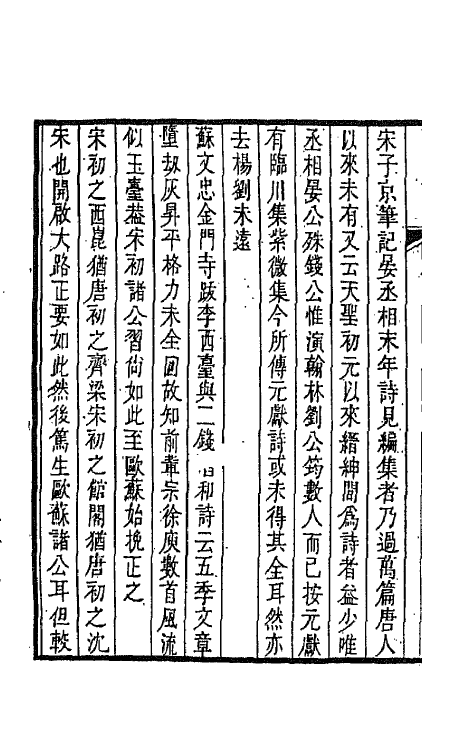 宋子京筆記晏丞相末年詩見編集者乃過萬篇唐人
以來未有又云天聖初元以來縉紳間爲詩者益少唯
丞相晏公殊錢公惟演翰林劉公筠數人而已按元獻
有臨川集紫微集今所傳元獻詩或未得其全耳然亦
去楊劉未遠
蘇文忠金門寺跋李西臺與二錢唱和詩云五季文章
墮劫灰昇平格力未全回故知前輩宗徐庾數首風流
似玉臺葢宋初諸公習尙如此至歐蘇始挽正之
宋初之西崑猶唐初之齊梁宋初之館閣猶唐初之沈
宋也開啟大路正要如此然後篤生歐蘇諸公耳但較